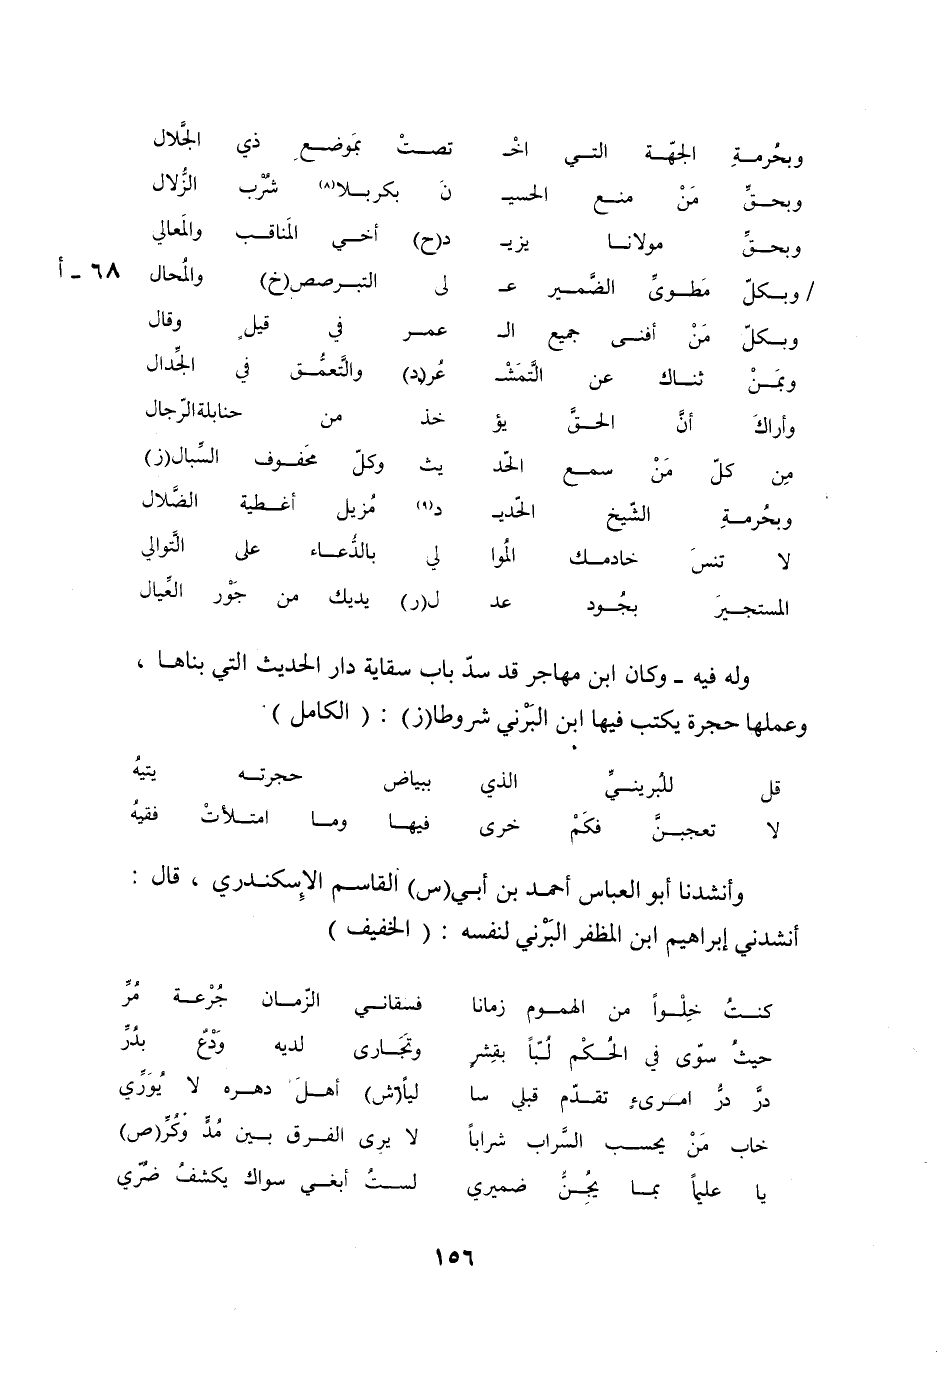 وبحُرمةِ الجهّة التي اخـ تصتْ بمَوضعٍ ذي الجَّلال
وبحقِّ مَنْ منع الحسيـ نَ بكربلا(٨) شُرْب الزُّلال
وبحقِّ مولانا يزيـ د(ح) أخي المَناقب والمَعالي
/ وبكلّ مَطويِّ الضَّمير عـ لى التبرصص(خ) والمُحال ٦٨ ـ أ
وبكلّ مَنْ أفنى جميع الـ عمر في قيلٍ وقال
وبمَنْ ثناك عن التَّمَشْـ عُر(د) والتَّعمُّق في الجِّدال
وأراكَ أنَّ الحقَّ يؤ خذ من حنابلة الرّجال
مِن كلّ مَنْ سمع الحَد يث وكلّ محَفوف السِّبال(ز)
وبحُرمةِ الشّيخ الحَديـ د(٩) مُزيل أغطية الضَّلال
لا تنسَ خادمك المُوا لي بالدُّعاء على التَّوالي
المستجيرَ بجُود عد ل(ر) يديك من جَوْر العِّيال
وله فيه ـ وكان ابن مهاجر قد سدّ باب سقاية دار الحديث التي بناها ،
وعملها حجرة يكتب فيها ابن البَرْني شروطا(ز) : ( الكامل )
قل للبُرينيِّ الذي ببياض حجرته يتيهُ
لا تعجبنَّ فكَمْ خرى فيها وما امتلأتْ فقيهُ
وأنشدنا أبو العباس أحمد بن أبي(س) القاسم الإسكندري ، قال :
أنشدني إبراهيم ابن المظفر البَرْني لنفسه : ( الخفيف )
كنتُ خِلْواً من الهموم زمانا فسقاني الزّمان جُرْعة مُرِّ
حيثُ سوّى في الحُكْم لُبّاً بقِشرٍ وتجَارى لديه وَدْعٌ بدُرِّ
درَّ درُّ امرىءٍ تقدّم قبلي سا لبأ(ش) أهلَ دهره لا يُوَرِّي
خاب مَنْ يحسب السَّراب شراباً لا يرى الفرق بين مُدٍّ وكُرِّ(ص)
يا عليماً بما يجُنُّ ضميري لستُ أبغي سواك يكشفُ ضرّي
١٥٦